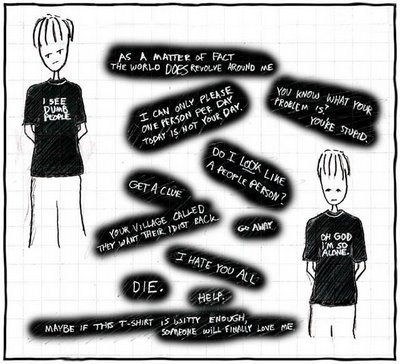 AS A MATTER OF FACT
THE WORLD DOES REVOLVE AROUND ME
I SEE
DUMB
PEOPLE.
I CAN ONLY PLEASE
ONE PERSON PER DAY
TODAY IS NOT YOUR DAY.
YOU KNOW WHAT YOUR
PROBLEM IS?
YOU'RE STUPID.
DO I LOOK LIKE
A PEOPLE PERSON?
GET A CLUE
YOUR VILLAGE CALLED
THEY WANT THEIR IDIOT BACK
GO AWAY.
OH GOD
I'M SO
ALONE.
I HATE YOU ALL
DIE.
HELP.
MAYBE IF THIS T-SHIRT IS WITTY ENOUGH,
SOMEONE WILL FINALLY LOVE ME.